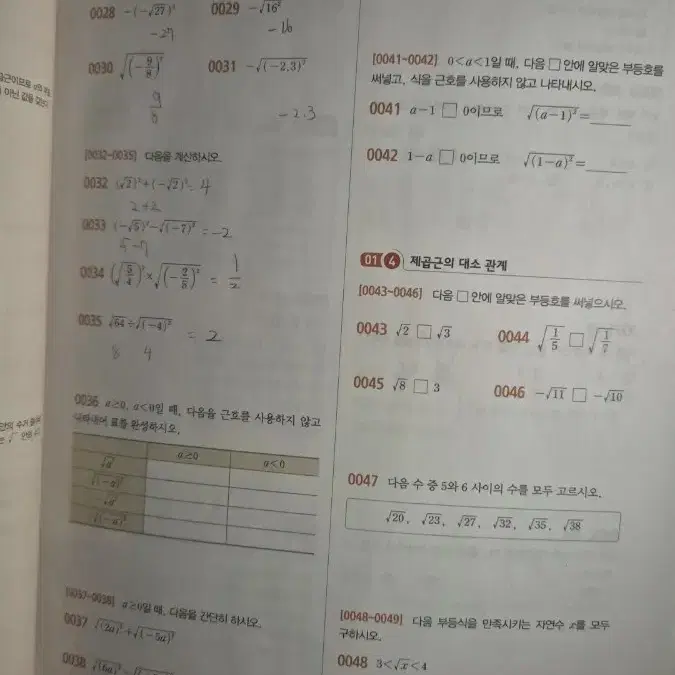 0028 -(-√27)²
-27
0029 -√16²
-16
0030 √(-9/8)²
9/8
0031 -√(-2.3)²
-2.3
[0032~0035] 다음을 계산하시오.
0032 (√2)²+(-√2)² = 4
2+2
0033 (-√5)²-√(-7)² = -2
5-7
0034 (√5/4)²×√(-2/5)² = 1/2
0035 √64÷√(-4)² = 2
8 4
0036 a≥0, a<0일 때, 다음을 근호를 사용하지 않고
나타내어 표를 완성하시오.
a≥0 a<0
√a²
√(-a)²
-√(-a)²
[0037~0038] a≥0일 때, 다음을 간단히 하시오.
0037 √(2a)²+√(-5a)²
0038 √(6a)²-
[0041~0042] 0<a<1일 때, 다음 □ 안에 알맞은 부등호를
써넣고, 식을 근호를 사용하지 않고 나타내시오.
0041 a-1 □ 0이므로 √(a-1)²=____
0042 1-a □ 0이므로 √(1-a)²=____
01 4 제곱근의 대소 관계
[0043~0046] 다음 □ 안에 알맞은 부등호를 써넣으시오.
0043 √2 □ √3
0044 √1/5 □ √1/7
0045 √8 □ 3
0046 -√11 □ -√10
0047 다음 수 중 5와 6 사이의 수를 모두 고르시오.
√20, √23, √27, √32, √35, √38
[0048~0049] 다음 부등식을 만족시키는 자연수 x를 모두
구하시오.
0048 3<√x<4